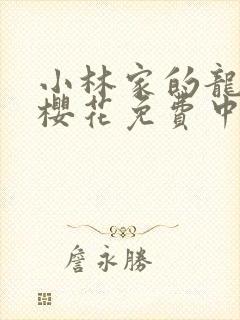 小林家的龍
櫻花免費中
詹永勝